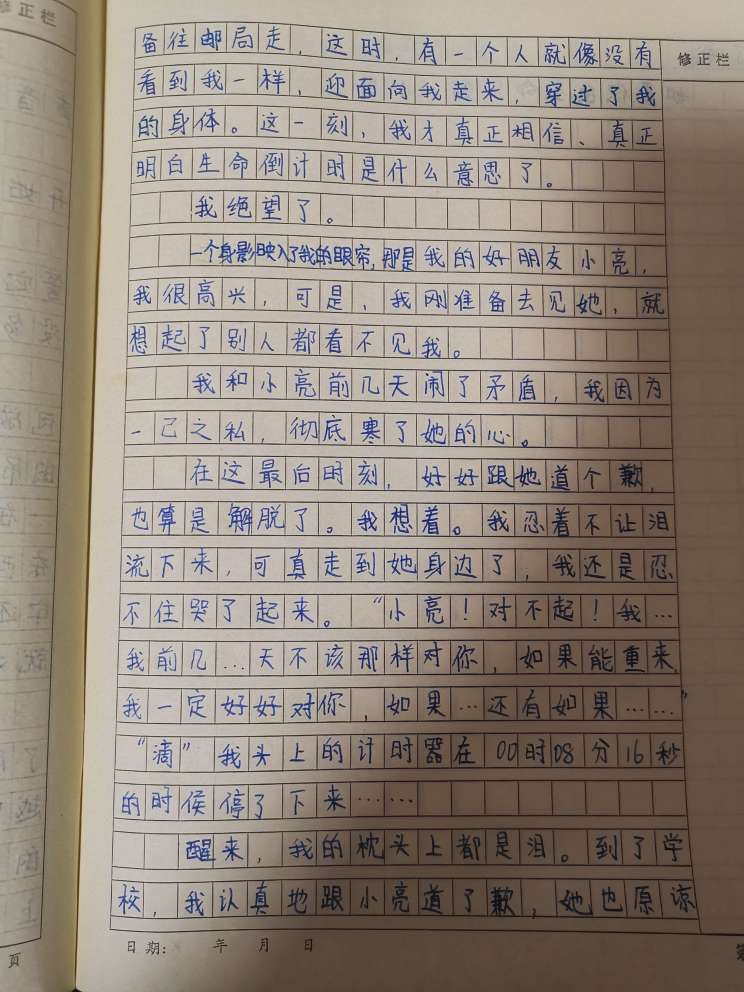 修正栏
备往邮局走，这时，有一个人就像没有
修正栏
看到我一样，迎面向我走来，穿过了我
的身体。这一刻，我才真正相信、真正
明白生命倒计时是什么意思了。
我绝望了。
一个身影映入了我的眼帘，那是我的好朋友小亮，
我很高兴，可是，我刚准备去见她，就
想起了别人都看不见我。
我和小亮前几天闹了矛盾，我因为
一己之私，彻底寒了她的心。
在这最后时刻，好好跟她道个歉，
也算是解脱了。我想着。我忍着不让泪
流下来，可真走到她身边了，我还是忍
不住哭了起来。“小亮！对不起！我…
我前几…天不该那样对你，如果能重来，
我一定好好对你，如果…还有如果……”
“滴”我头上的计时器在00时08分16秒
的时侯停了下来……
醒来，我的枕头上都是泪。到了学
校，我认真地跟小亮道了歉，她也原谅
日期： 年 月 日
页